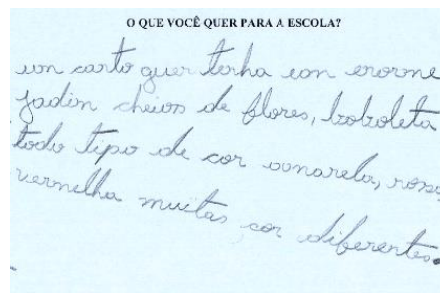 O QUE VOCÊ QUER PARA A ESCOLA?
um canto quer tenha um enorme
jadin cheios de flores, boboleta
todo tipo de cor amarela, rosa,
vermelha muitas cor diferentes.